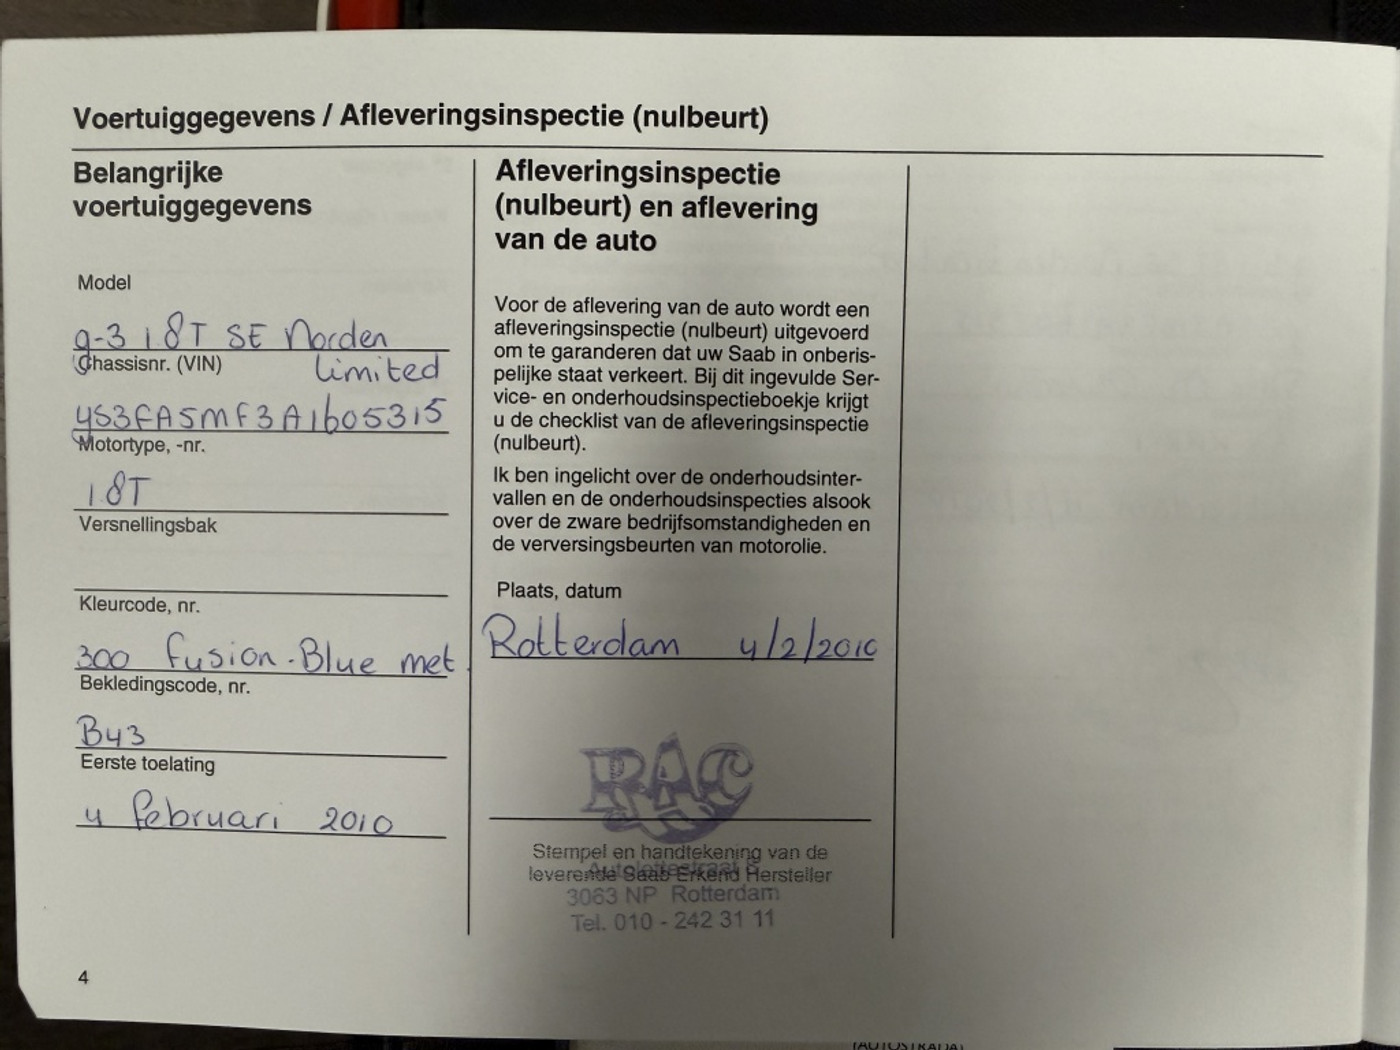 Voertuiggegevens / Afleveringsinspectie (nulbeurt)
Belangrijke
voertuiggegevens
Model
9-3 1.8T SE Norden
Limited
Chassisnr. (VIN)
YS3FA5MF3A1605315
Motortype, -nr.
1.8T
Versnellingsbak
Kleurcode, nr.
300 Fusion-Blue met
Bekledingscode, nr.
B43
Eerste toelating
4 februari 2010
4
Afleveringsinspectie
(nulbeurt) en aflevering
van de auto
Voor de aflevering van de auto wordt een
afleveringsinspectie (nulbeurt) uitgevoerd
om te garanderen dat uw Saab in onberis-
pelijke staat verkeert. Bij dit ingevulde Ser-
vice- en onderhoudsinspectieboekje krijgt
u de checklist van de afleveringsinspectie
(nulbeurt).
Ik ben ingelicht over de onderhoudsinter-
vallen en de onderhoudsinspecties alsook
over de zware bedrijfsomstandigheden en
de verversingsbeurten van motorolie.
Plaats, datum
Rotterdam 4/2/2010
RAC
Stempel en handtekening van de
leverende Saab Erkend Hersteller
3063 NP Rotterdam
Tel. 010 - 242 31 11
(AUTOSTRADA)